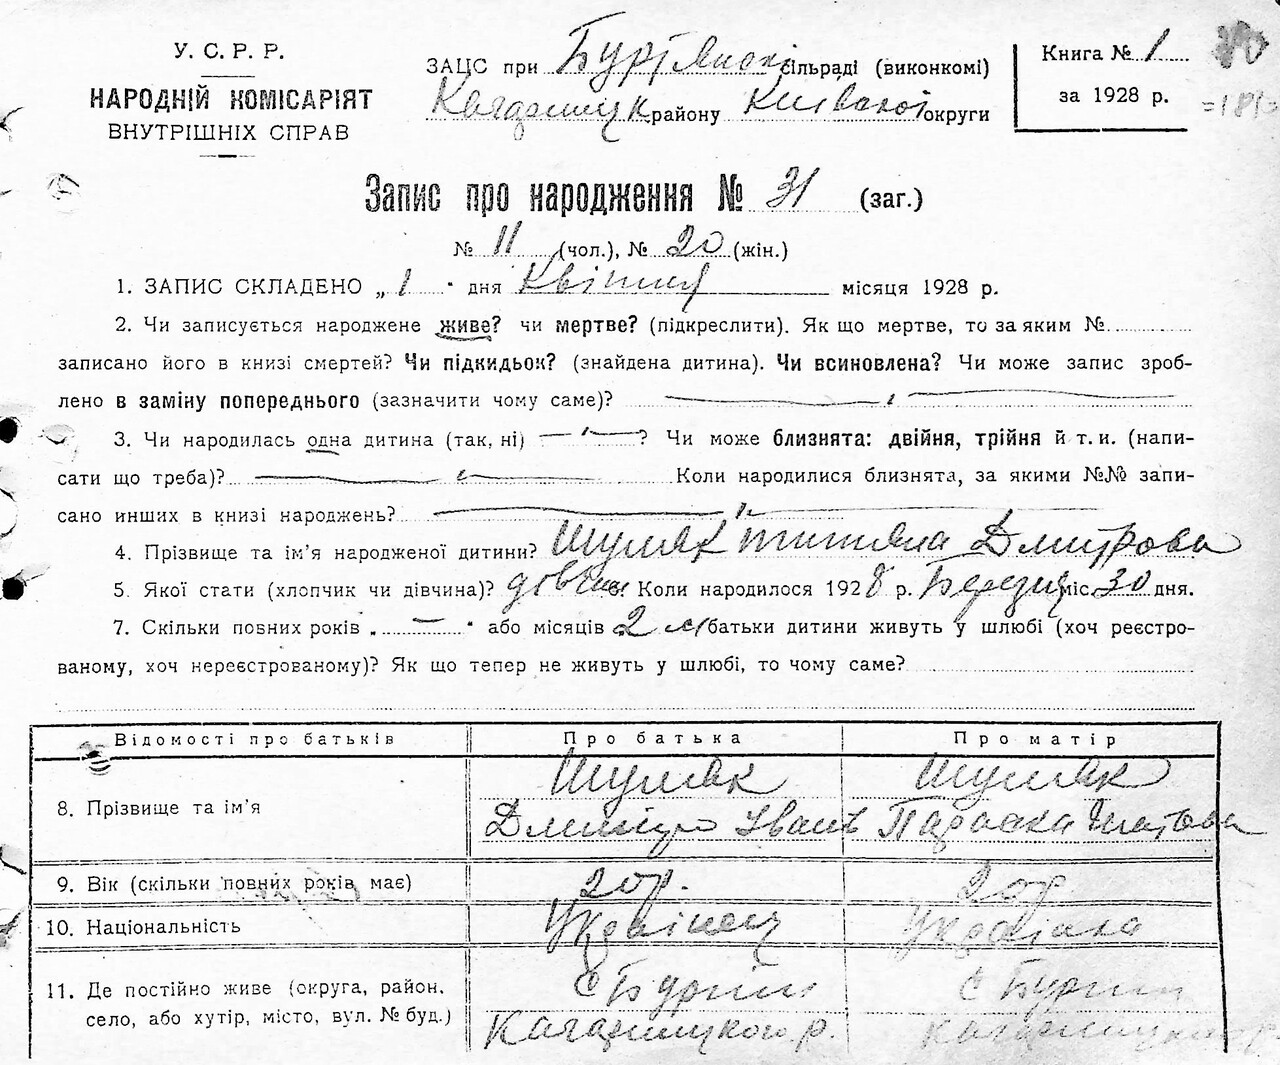 У. С. Р. Р.
НАРОДНІЙ КОМІСАРІЯТ
ВНУТРІШНІХ СПРАВ
ЗАЦС при Буртянскі сільраді (виконкомі)
Кагарлицьк району Київської округи
Книга № 1
за 1928 р.
=181=
Запис про народження № 31 (заг.)
№ 11 (чол.), № 20 (жін.)
1. ЗАПИС СКЛАДЕНО „ 1 " дня Квітня місяця 1928 р.
2. Чи записується народжене живе? чи мертве? (підкреслити). Як що мертве, то за яким №
записано його в книзі смертей? Чи підкидьок? (знайдена дитина). Чи всиновлена? Чи може запис зроб-
лено в заміну попереднього (зазначити чому саме)?
3. Чи народилась одна дитина (так, ні) ? Чи може близнята: двійня, трійня й т. и. (напи-
сати що треба)? Коли народилися близнята, за якими №№ запи-
сано инших в книзі народжень?
4. Прізвище та ім'я народженої дитини? Шуляк Титяна Дмитрова
5. Якої стати (хлопчик чи дівчина)? дівчина Коли народилося 1928 р. Березня міс. 30 дня.
7. Скільки повних років „ — " або місяців 2 м батьки дитини живуть у шлюбі (хоч реєстро-
ваному, хоч нереєстрованому)? Як що тепер не живуть у шлюбі, то чому саме?
Відомості про батьків Про батька Про матір
8. Прізвище та ім'я Шуляк Шуляк
Дмитро Іванів Параска
9. Вік (скільки повних років має) 20 р. 20 р.
10. Національність Українець Українка
11. Де постійно живе (округа, район, с Бурти с Бурти
село, або хутір, місто, вул. № буд.) Кагарлицького р.